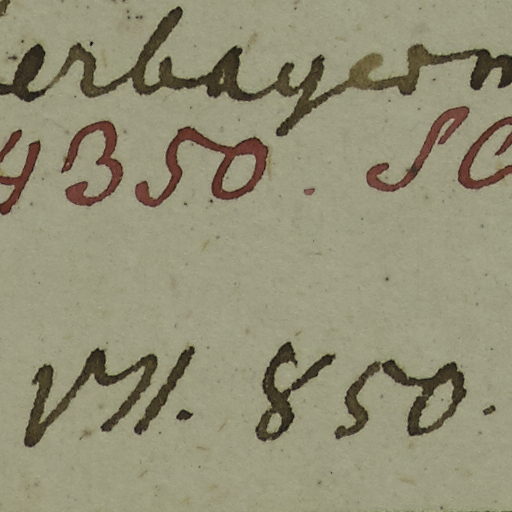 erbayern
4350. SC
VII. 850.